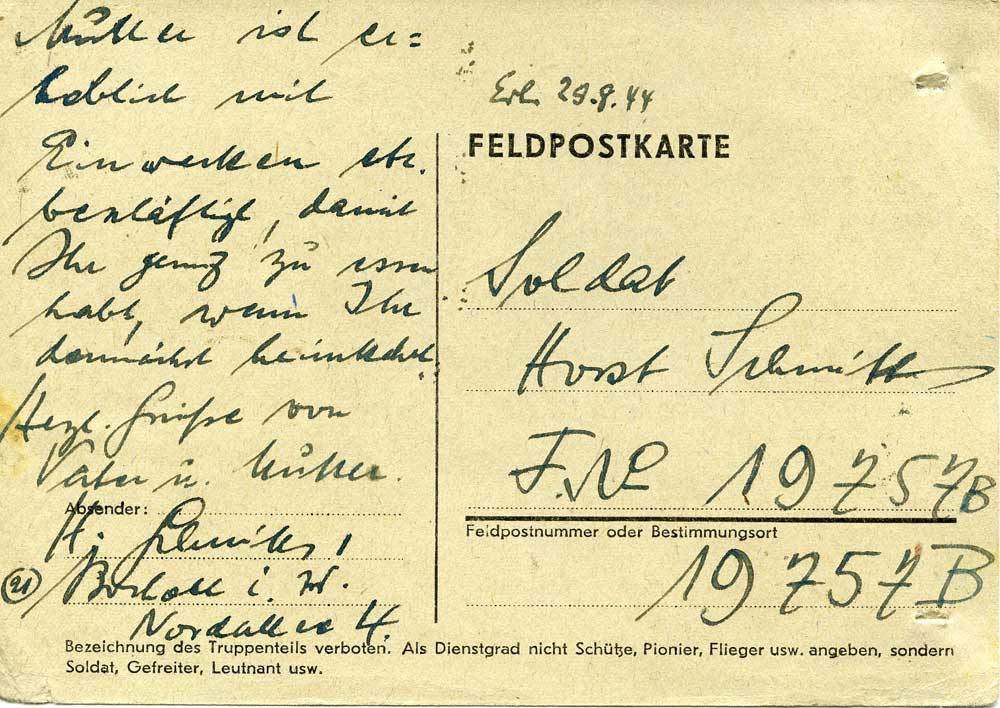 Mutter ist er=
heblich mit
Einwecken etc.
beschäftigt, damit
Ihr genug zu essen
habt, wenn Ihr
demnächst heimkehrt.
Herzl. Grüße von
Vater u. Mutter.
Absender:
H. Schmitt,
(21) Bocholt i. W.
Nordallee 4.
Erh. 29.9.44
FELDPOSTKARTE
Soldat
Horst Schmitt
F. No 19757B
Feldpostnummer oder Bestimmungsort
19757B
Bezeichnung des Truppenteils verboten. Als Dienstgrad nicht Schütze, Pionier, Flieger usw. angeben, sondern
Soldat, Gefreiter, Leutnant usw.